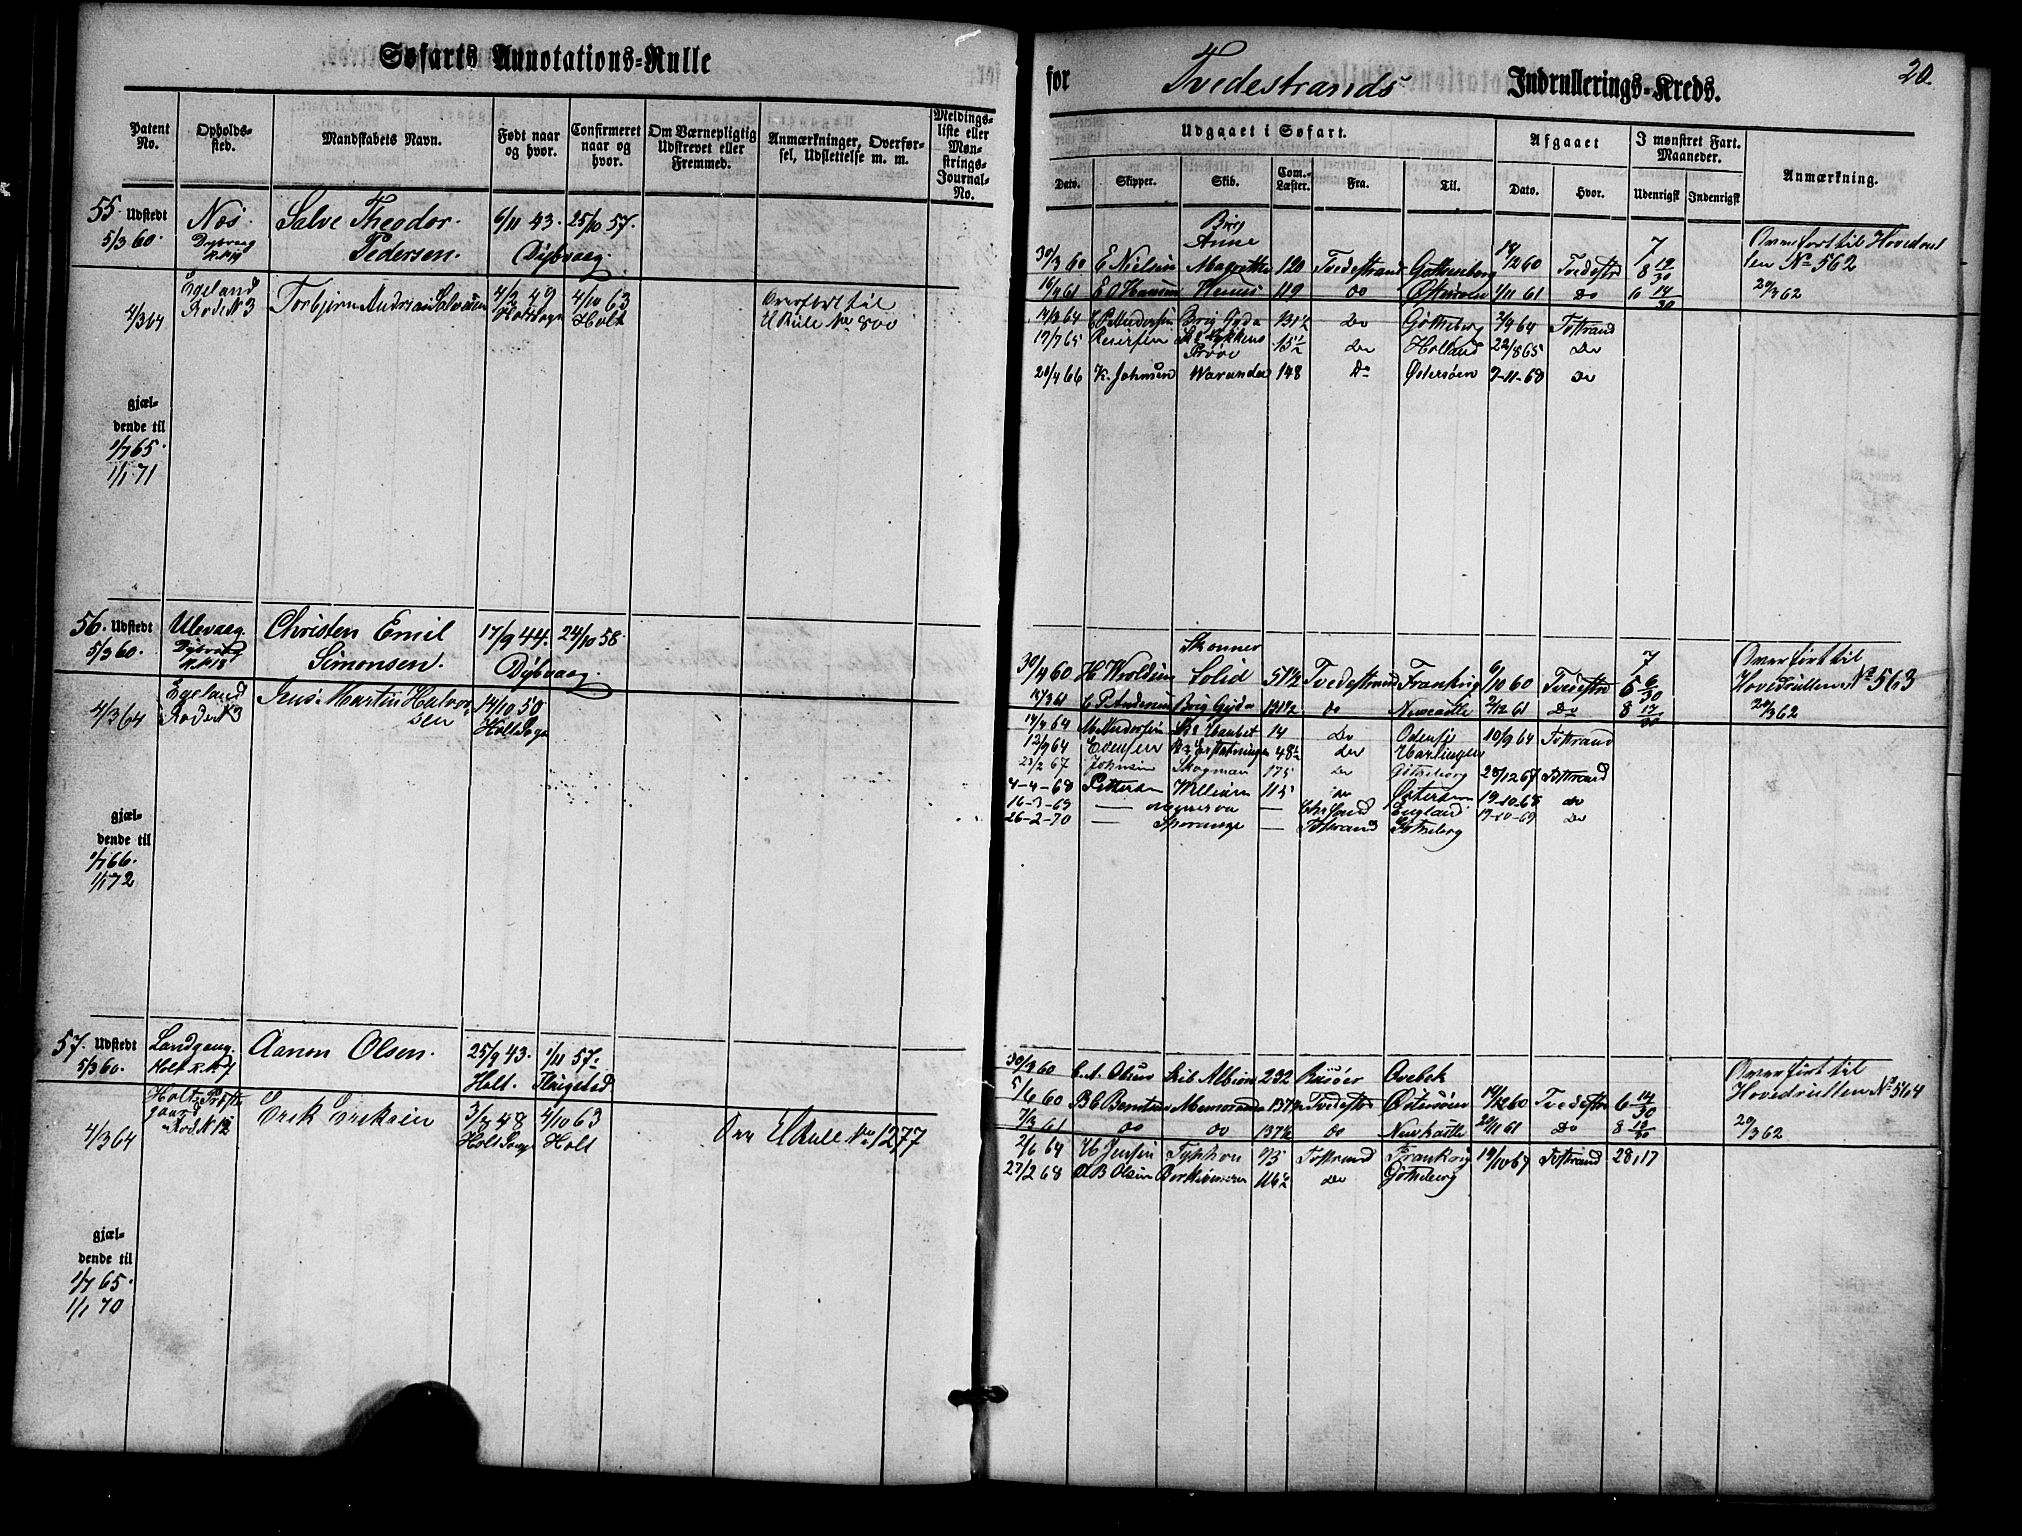 Søfarts Annotations-Rulle
for Tvedestrands Indrullerings-Kreds. 20.
Patent No. Opholds-sted. Mandskabets Navn. Født naar og hvor. Confirmeret naar og hvor. Om Værnepligtig Udskrevet eller Fremmed. Anmærkninger, Overførsel, Udslettelse m. m. Meldings-liste eller Mønstrings-Journal-No.
Udgaaet i Søfart. Afgaaet I mønstret Fart. Maaneder. Anmærkning.
Dato. Skipper. Skib. Com.-Læster. Fra. Til. Dato. Hvor. Udenrigsk Indenrigsk
55. Udstedt Næs. Salve Theodor 6/11 43. 25/10 57.
5/3 60. Dybvaag Pedersen. Dybvaag.
4/3 64 Egeland Rode N 3 Torbjørn Andreas Salvesen 4/2 49 4/10 63
Holt Sogn Holt
Overført til
H Rulle No 800
gjæl-
dende til
1/7 65.
1/1 71
Brig
Anne
30/3 60 E Nielsen Magrethe 120 Tvedestrand Gothenborg 18/12 60 Tvedestr 7 8 19/30 Overført til Hovedrul
len No 562
16/4 61 E O Hansen Venus 119 do Østersøen 4/11 61 Do 6 14/30 20/3 62
14/3 64 E P Andersen Brig Gyda 131½ Do Götheborg 2/9 64 Tvstrand
17/7 65 Reiersen Lykkens Prøve 15½ do Holland 22/8 65 Do
20/4 66 K. Johnsen Waranda 148 Do Østersøen 9-11-68 Do
56. Udstedt Ulevaag. Christen Emil 17/9 44. 24/10 58.
5/3 60. Dybvaag Simonsen. Dybvaag.
4/3 64 Egeland Rode N 3 Jens Martin Halvor 14/10 50
sen Holt Sogn
gjæl-
dende til
1/7 66.
1/1 72
Skonner
30/4 60 H Wroldsen Solid 51½ Tvedestrand Frankrig 6/10 60 Tvedestr 7 5 6/30 Overført til
Hovedrullen No 563
15/3 61 E P Andersen Brig Gyda 131½ do Newcastle 2/12 61 Do 8 17/30 20/3 62
14/4 64 M Andersen Haabet 14 Do Odense 10/9 64 Tvstrand
12/9 64 Evensen Erstatningen 48½ do Harlingen
23/2 67 Johnsen Skogman 175 do Götheborg 20/12 67 Tvstrand
4-4-68 Pettersen William 115 do Østersøen 19-10-68 do
16-3-69 — Minerva — England 19-10-69 do
26-2-70 — — Tvstrand Götheborg
57. Udstedt Landgang. Aanon Olsen. 25/9 43. 1/11 57.
5/3 60. Holt R. N 7 Holt. Flaigstad
4/3 64 Holt Præste
gaard Rode N 12 Erik Eriksen 3/8 48 4/10 63
Holt Sogn Holt
Ovr H Rulle No 1277
gjæl-
dende til
1/7 65.
1/1 70
30/3 60 C. A. Olsen Skib Albion 232 Risøer Qvebek Overført til
5/6 60 B C Berntsen Memoranda 137½ Tvedestr Østersøen 14/12 60 Tvedestr 6 14/30 Hovedrullen No 564
7/3 61 do do 137½ do Newkastle 20/11 61 Do 8 13/30 20/3 62
2/6 64 H Jensen Typhon 93 Tvstrand Frankrig 19/10 67 Tvstrand 28,17
27/2 68 O B Olsen 116½ do Götheborg